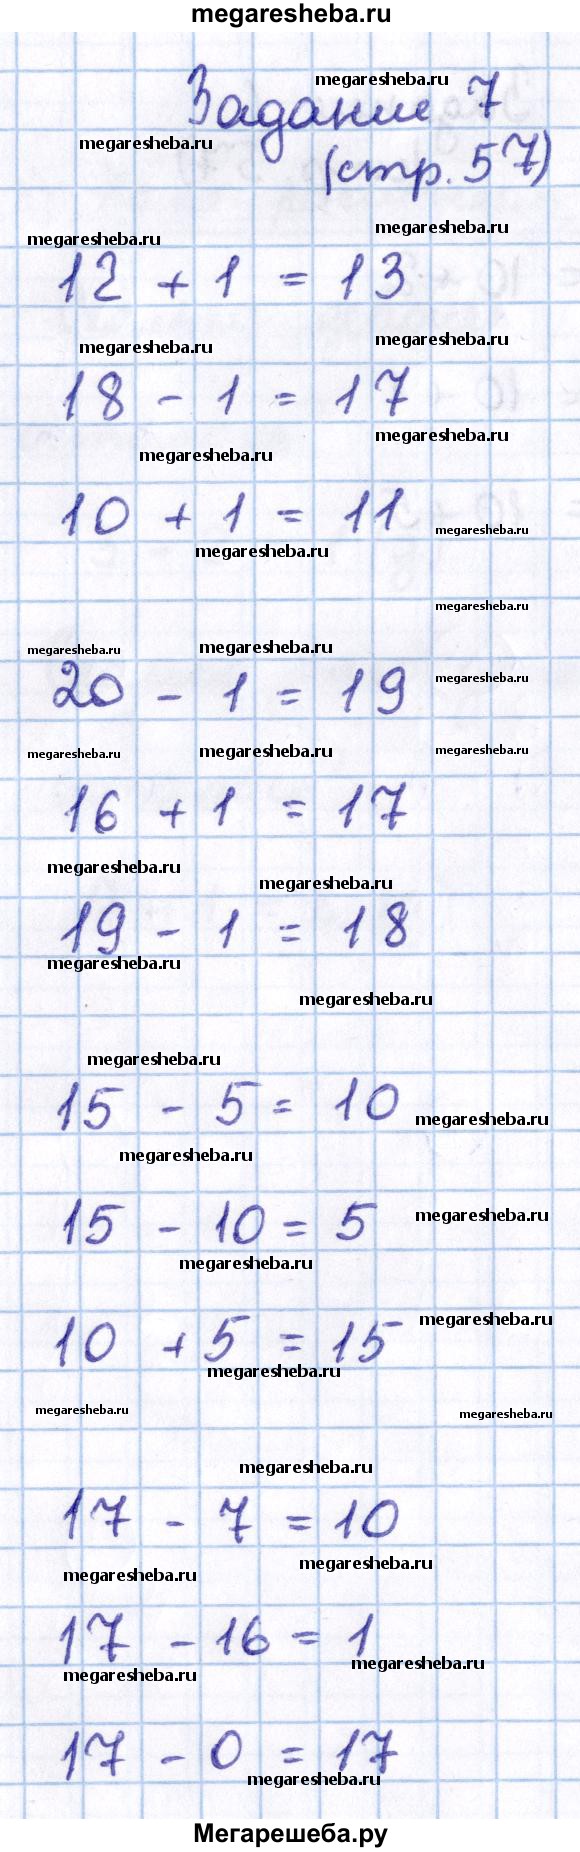 megaresheba.ru
Задание 7
megaresheba.ru
megaresheba.ru
(стр. 57)
megaresheba.ru
megaresheba.ru
12 + 1 = 13
megaresheba.ru
megaresheba.ru
18 - 1 = 17
megaresheba.ru
megaresheba.ru
10 + 1 = 11
megaresheba.ru
megaresheba.ru
megaresheba.ru
megaresheba.ru
megaresheba.ru
megaresheba.ru
20 - 1 = 19
megaresheba.ru
megaresheba.ru
megaresheba.ru
16 + 1 = 17
megaresheba.ru
megaresheba.ru
19 - 1 = 18
megaresheba.ru
megaresheba.ru
megaresheba.ru
15 - 5 = 10
megaresheba.ru
megaresheba.ru
15 - 10 = 5
megaresheba.ru
megaresheba.ru
megaresheba.ru
10 + 5 = 15
megaresheba.ru
megaresheba.ru
megaresheba.ru
megaresheba.ru
17 - 7 = 10
megaresheba.ru
megaresheba.ru
17 - 16 = 1
megaresheba.ru
megaresheba.ru
17 - 0 = 17
megaresheba.ru
Мегарешеба.ру